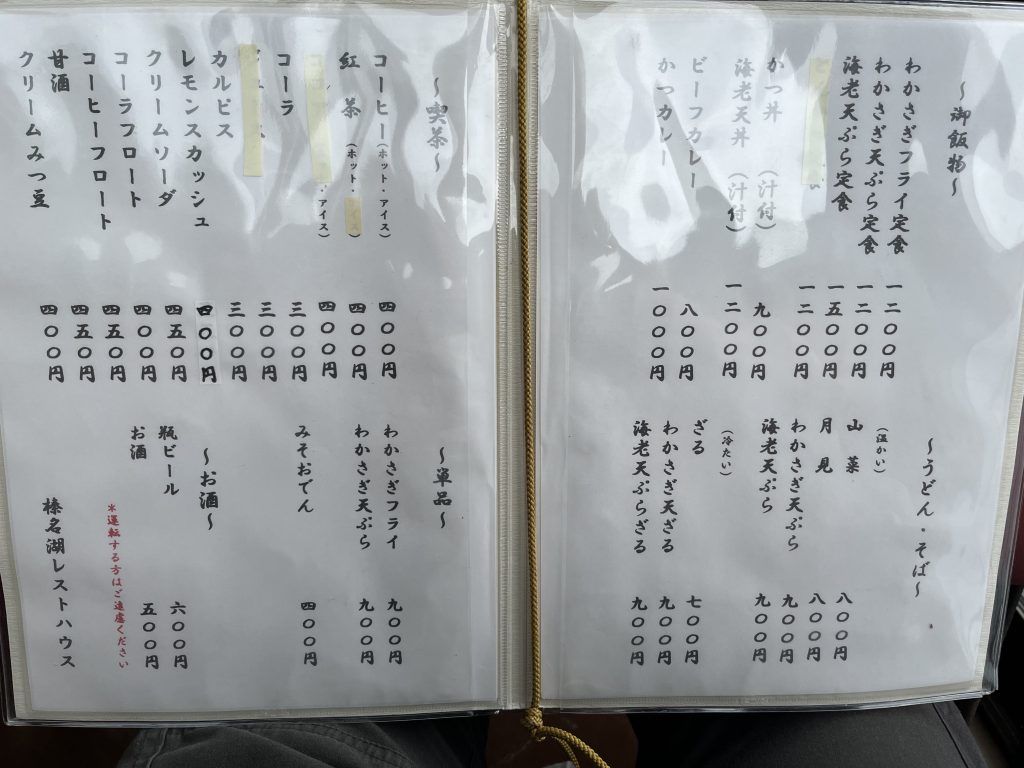 ～御飯物～
わかさぎフライ定食 一二〇〇円
わかさぎ天ぷら定食 一二〇〇円
海老天ぷら定食 一五〇〇円
一二〇〇円
かつ丼（汁付） 九〇〇円
海老天丼（汁付） 一二〇〇円
ビーフカレー 八〇〇円
かつカレー 一〇〇〇円
～うどん・そば～
（温かい）
山菜 八〇〇円
月見 八〇〇円
わかさぎ天ぷら 九〇〇円
海老天ぷら 九〇〇円
（冷たい）
ざる 七〇〇円
わかさぎ天ざる 九〇〇円
海老天ぷらざる 九〇〇円
～喫茶～
コーヒー（ホット・アイス） 四〇〇円
紅茶（ホット・アイス） 四〇〇円
・アイス） 四〇〇円
コーラ 三〇〇円
三〇〇円
カルピス 三〇〇円
レモンスカッシュ 四〇〇円
クリームソーダ 四五〇円
コーラフロート 四〇〇円
コーヒーフロート 四五〇円
甘酒 四五〇円
クリームみつ豆 四〇〇円
～単品～
わかさぎフライ 九〇〇円
わかさぎ天ぷら 九〇〇円
みそおでん 四〇〇円
～お酒～
瓶ビール 六〇〇円
お酒 五〇〇円
＊運転する方はご遠慮ください
榛名湖レストハウス